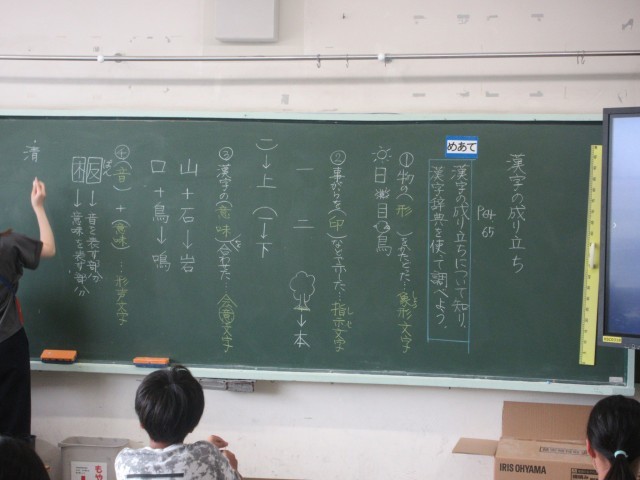 漢字の成り立ち
P64
65
めあて
漢字の成り立ちについて知り、
漢字辞典を使って調べよう。
①物の(形)をかたどった…象形文字
日 目 鳥
②事がらを(印)などで示す…指示文字
一 二
→本
→上 →下
③漢字の(意味)を合わせた…会意文字
山+石→岩
口+鳥→鳴
④(音)+(意味)…形声文字
はん
板
→音を表す部分
→意味を表す部分
清
IRIS OHYAMA